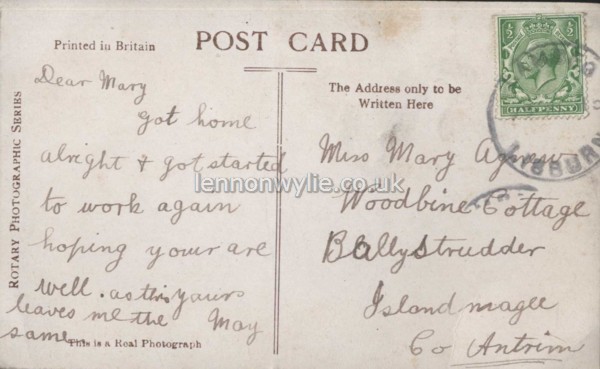 Printed in Britain
POST CARD
ROTARY PHOTOGRAPHIC SERIES
Dear Mary
got home
alright & got started
to work again
hoping your are
well. as this
leaves me the
same
yours
May
This is a Real Photograph
The Address only to be
Written Here
Miss Mary Agnew
Woodbine Cottage
Ballystrudder
Islandmagee
Co Antrim
½ ½
HALFPENNY
LISBURN
lennonwylie.co.uk